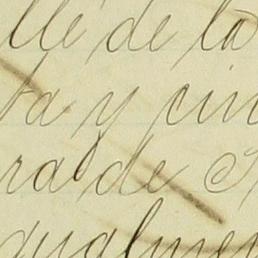 lle de la
ta y cin
ra de S
gualmen